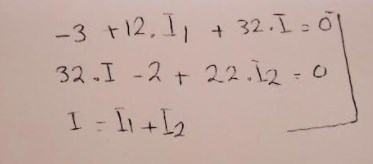 -3 + 12. I₁ + 32. I = 0
32. I - 2 + 22. I₂ = 0
I = I₁ + I₂